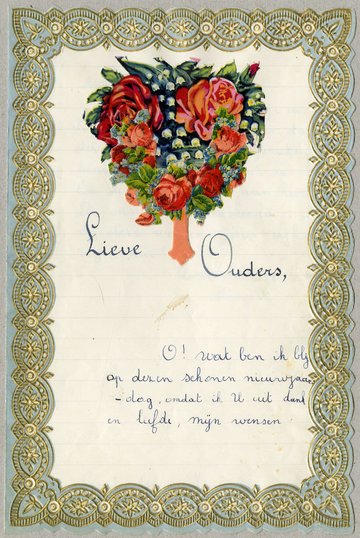 Lieve Ouders,
O! wat ben ik blij
op dezen schonen nieuwjaars
-dag, omdat ik U uit dank
en liefde, mijn wensen